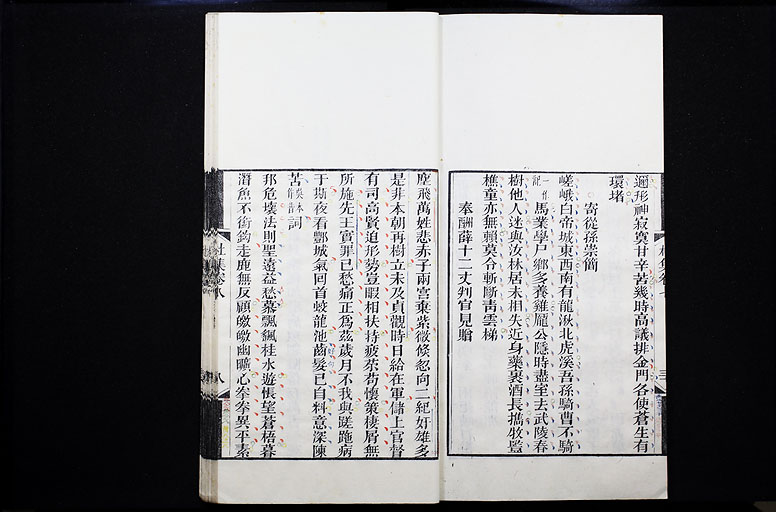 邇形神寂寞甘辛苦幾時高議排金門各使蒼生有
環堵
寄從孫崇簡
嵯峨白帝城東西南有龍湫北虎溪吾孫騎曹不騎
馬業學尸鄉多養雞龐公隱時盡室去武陵春
樹他人迷與汝林居未相失近身藥裹酒長攜牧豎
樵童亦無賴莫令斬斷青雲梯
奉酬薛十二丈判官見贈
塵飛萬姓悲赤子兩宮棄紫微倏忽向二紀奸雄多
是非本朝再樹立未及貞觀時日給在軍儲上官督
有司高賢迫形勢豈暇相扶持疲苶苟懷策棲屑無
所施先王實罪已愁痛正為茲歲月不我與蹉跎病
于斯夜看酆城氣回首蛟龍池齒髮已自料意深陳
苦詞
邦危壞法則聖遠益愁慕飄颻桂水遊悵望蒼梧暮
潛魚不銜鉤走鹿無反顧皦皦幽曠心拳拳異平素
杜集卷八
八